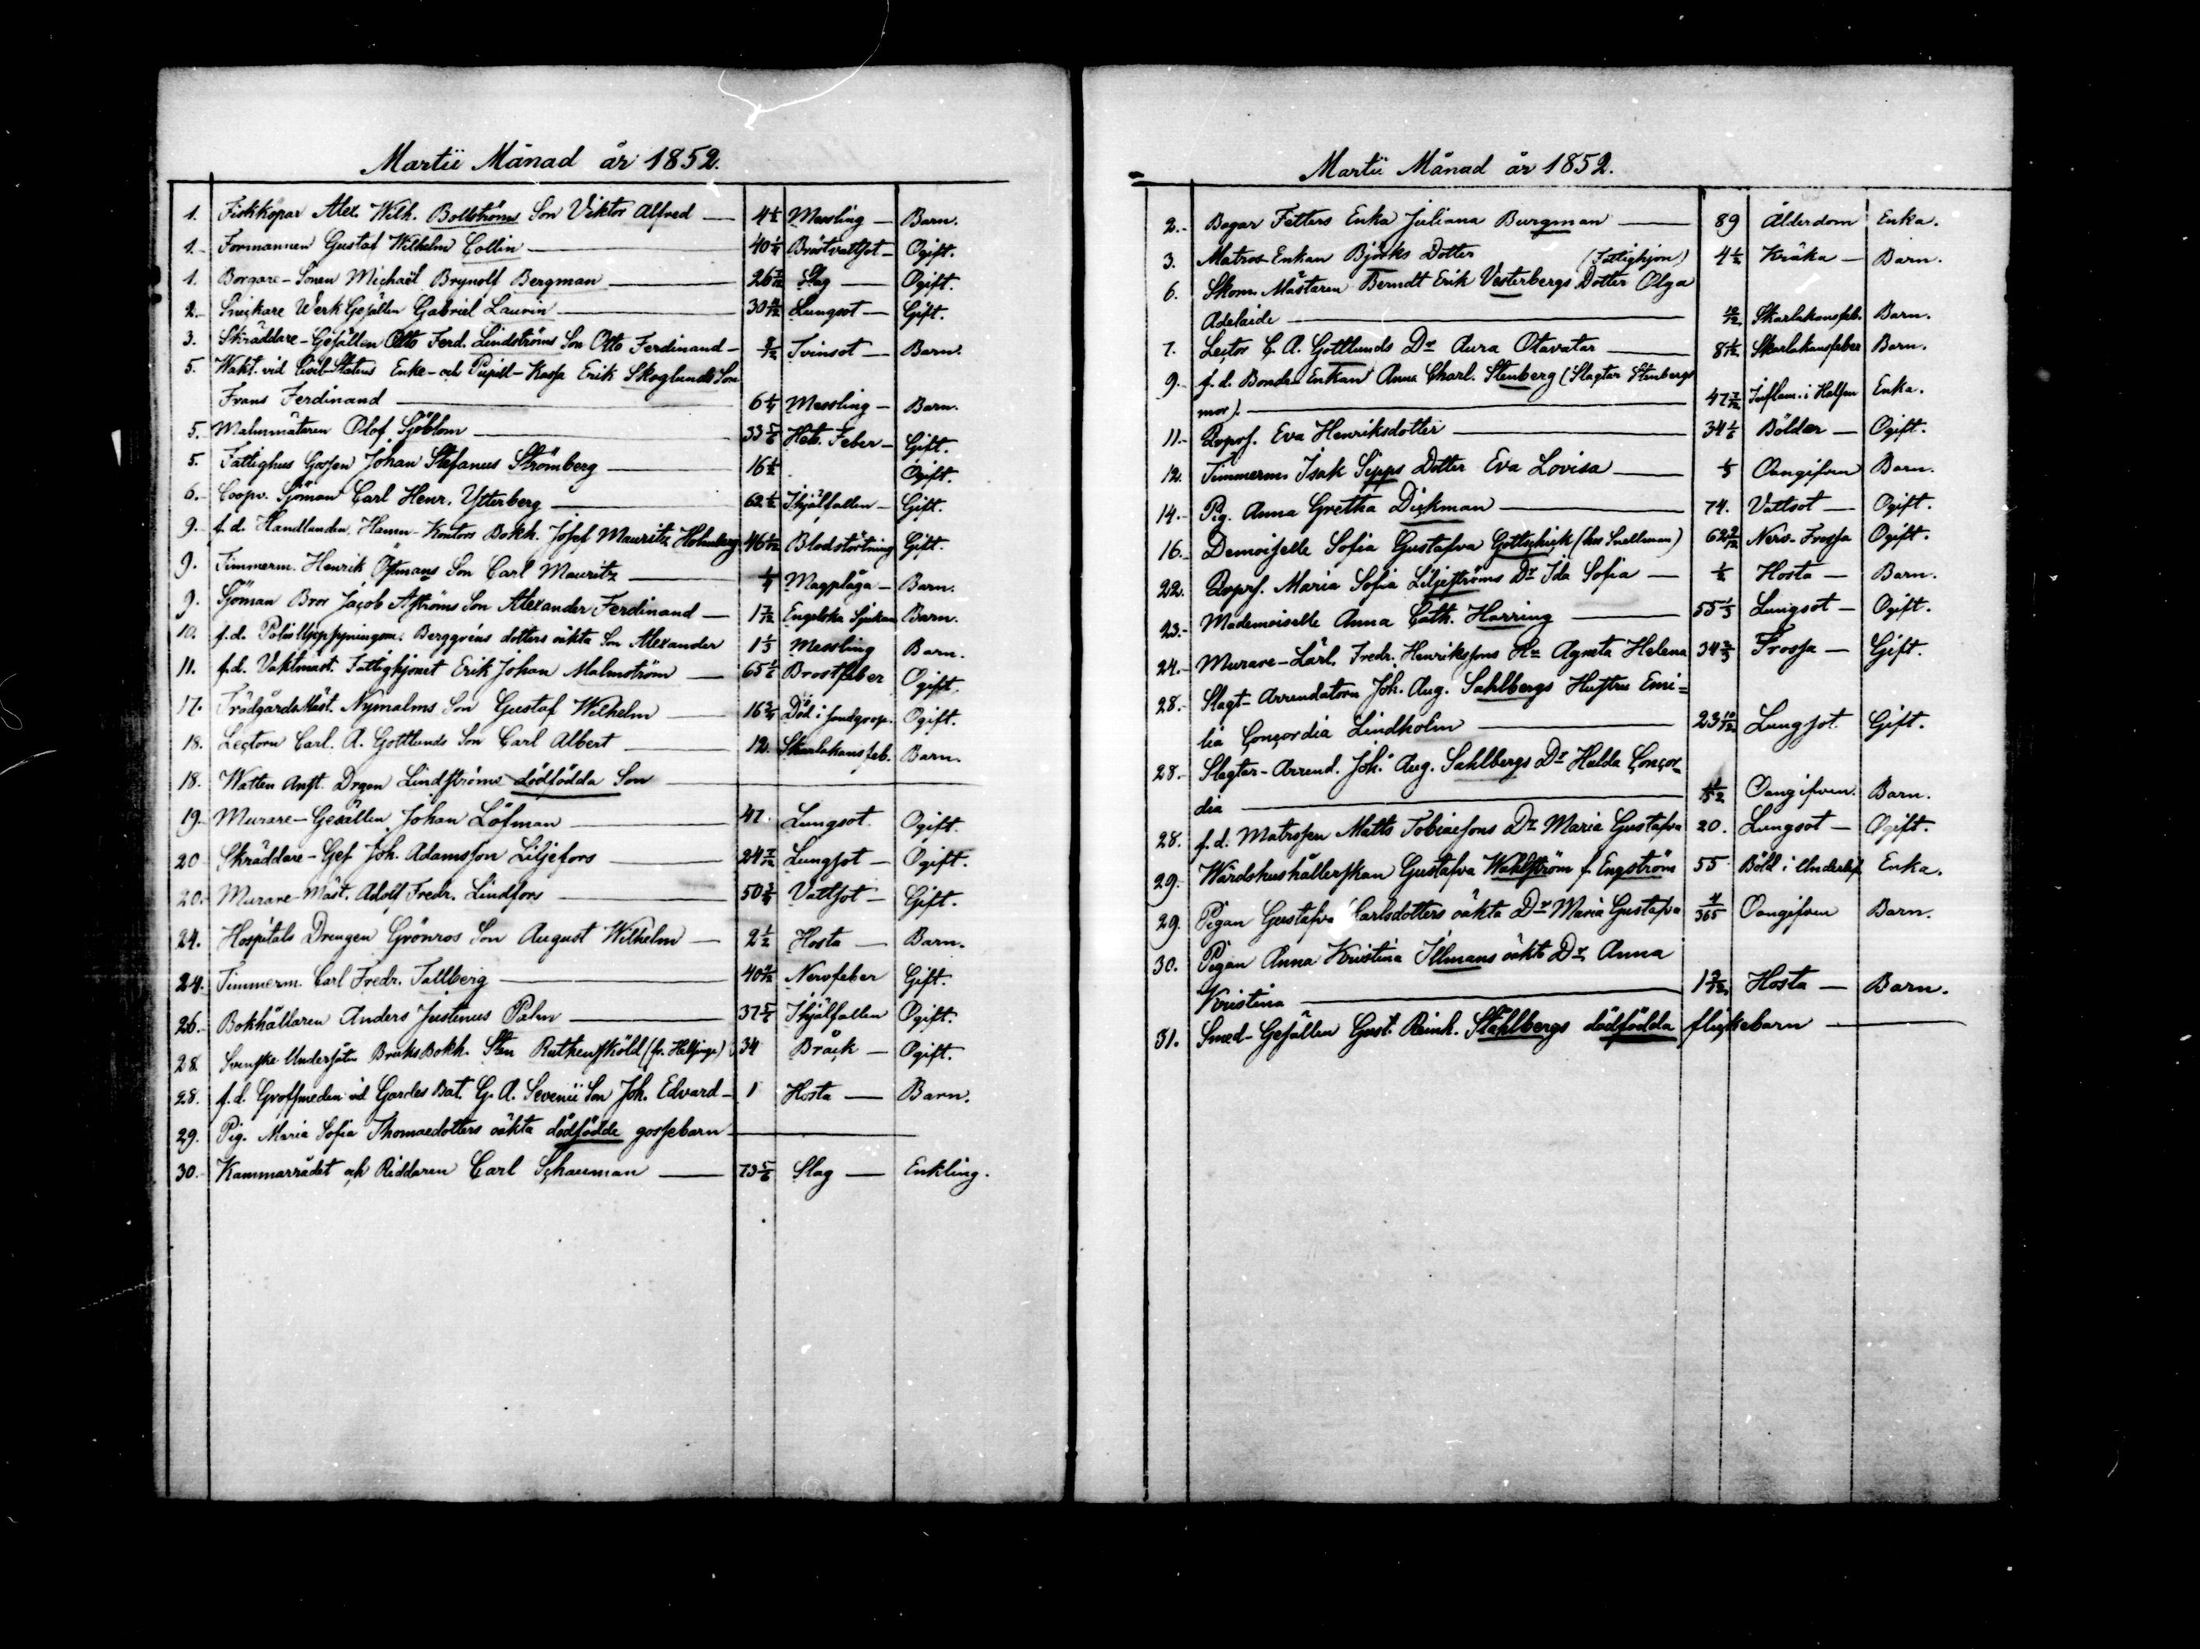 Martii Månad år 1852.
1. Fiskköpar Alex. Wilh. Bollströms Son Viktor Alfred — 4½ Messling — Barn.
1. Formannen Gustaf Wilhelm Collin — 40½ Bröstvattsot — Ogift.
1. Borgare-Sonen Michaël Brynolf Bergman — 26 Slag — Ogift.
2. Snickare Werk Gesällen Gabriel Laurin — 30 Lungsot — Gift.
3. Skräddare-Gesällen Otto Ferd. Lindströms Son Otto Ferdinand — Tvinsot — Barn.
5. Wakt. vid Civil-Statens Enke- och Pupill-Kassa Erik Skoglunds Son
Frans Ferdinand — 6 Messling — Barn.
5. Malmmätaren Olof Sjöblom — 33 5/6 Hets. Feber — Gift.
5. Fattighus Gossen Johan Stefanus Strömberg — 16½ Ogift.
6. Coopv. Sjöman Carl Henr. Ytterberg — 62½ Ihjälfallen — Gift.
9. f.d. Handlanden, Hamn-Kontors Bokh. Josef Mauritz Holmberg 46 Blodstörtning Gift.
9. Timmerm. Henrik Östmans Son Carl Mauritz — Magplåga — Barn.
9. Sjöman Bror Jacob Åströms Son Alexander Ferdinand — 1 Engelska Sjukan Barn.
10. f.d. Polis Uppsyningsm. Berggréns dotters oäkta Son Alexander 1⅓ Messling Barn.
11. f.d. Vaktmäst. Fattighjonet Erik Johan Malmström — 65 Bröstfeber Ogift.
17. Trädgårds Mäst. Nymalms Son Gustaf Wilhelm — 16 Död i Ogift.
18. Lectorn Carl. A. Gottlunds Son Carl Albert — 12. Skarlakansfeb. Barn.
18. Watten Anst. Drgen Lindströms dödfödda Son —
19. Murare-Gesällen Johan Löfman — 47. Lungsot. Ogift.
20 Skräddare-Ges. Joh. Adamsson Liljefors — 24 7/12 Lungsot — Ogift.
20. Murare-Mäst. Adolf Fredr. Lindfors — 50 Vattsot — Gift.
24. Hospitals Drengen Grönros Son August Wilhelm — 2½ Hosta — Barn.
24. Timmerm. Carl Fredr. Tallberg — 40 Nervfeber Gift.
26. Bokhållaren Anders Justinus Palm — 37 5/6 Ihjälfallen Ogift.
28 Svenske Undersåten Bruks Bokh. Sten Ruthensköld (fr. Helsinge) 34 Bråck — Ogift.
28. f.d. Grofsmeden vid Gardes Bat. G. A. Sevenii Son Joh. Edvard — 1 Hosta — Barn.
29. Pig. Maria Sofia Thomaedotters oäkta dödfödde gossebarn —
30. Kammarrådet och Riddaren Carl Schauman — 73 5/6 Slag — Enkling.
Martii Månad år 1852.
2. Bagar Fetters Enka Juliana Burgman — 89 Ålderdom Enka.
3. Matros Enkan Björks Dotter (Fattighjon) 4½ Kräka — Barn.
6. Skom. Mästaren Berndt Erik Vesterbergs Dotter Olga
Adelaide — 10/12 Skarlakansfeb. Barn.
7. Lector C. A. Gottlunds Dr Aura Otavatar — 8½ Skarlakansfeber Barn.
9. f.d. Bonde Enkan Anna Charl. Stenberg (Slagtar Stenbergs
mor). — 47 Inflam. i Halsen Enka.
11. Repsl. Eva Henriksdotter — 34 Bölder — Ogift.
12. Timmerm. Isak Sipps Dotter Eva Lovisa — Oangifven Barn.
14. Pig. Anna Gretha Dickman — 74. Vattsot — Ogift.
16. Demoiselle Sofia Gustafva Gottschick (hos Snellman) 62 Nerv-Frossa Ogift.
22. Repsl. Maria Sofia Liljeströms Dr Ida Sofia — ½ Hosta — Barn.
23. Mademoiselle Anna Cath. Harring — 55⅓ Lungsot — Ogift.
24. Murare-Lärl. Fredr. Henrikssons Hu Agneta Helena 34⅔ Frossa — Gift.
28. Slagt-Arrendatorn Joh. Aug. Sahlbergs Hustru Emi=
lia Concordia Lindholm — 23 10/12 Lungsot. Gift.
28. Slagtar-Arrend. Joh. Aug. Sahlbergs Dr Hulda Concor-
dia — Oangifven. Barn.
28. f.d. Matrosen Matts Tobiaesons Dr Maria Gustafva 20. Lungsot — Ogift.
29. Wärdshushållerskan Gustafva Wahlström f. Engström 55 Böld i Underlif. Enka.
29. Pigan Gustafva Carlsdotters oäkta Dr Maria Gustafva 4/365 Oangifven Barn.
30. Pigan Anna Kristina Illmans oäkta Dr Anna
Kristina — 1 Hosta — Barn.
31. Smed-Gesällen Gust. Reinh. Ståhlbergs dödfödda flickebarn —